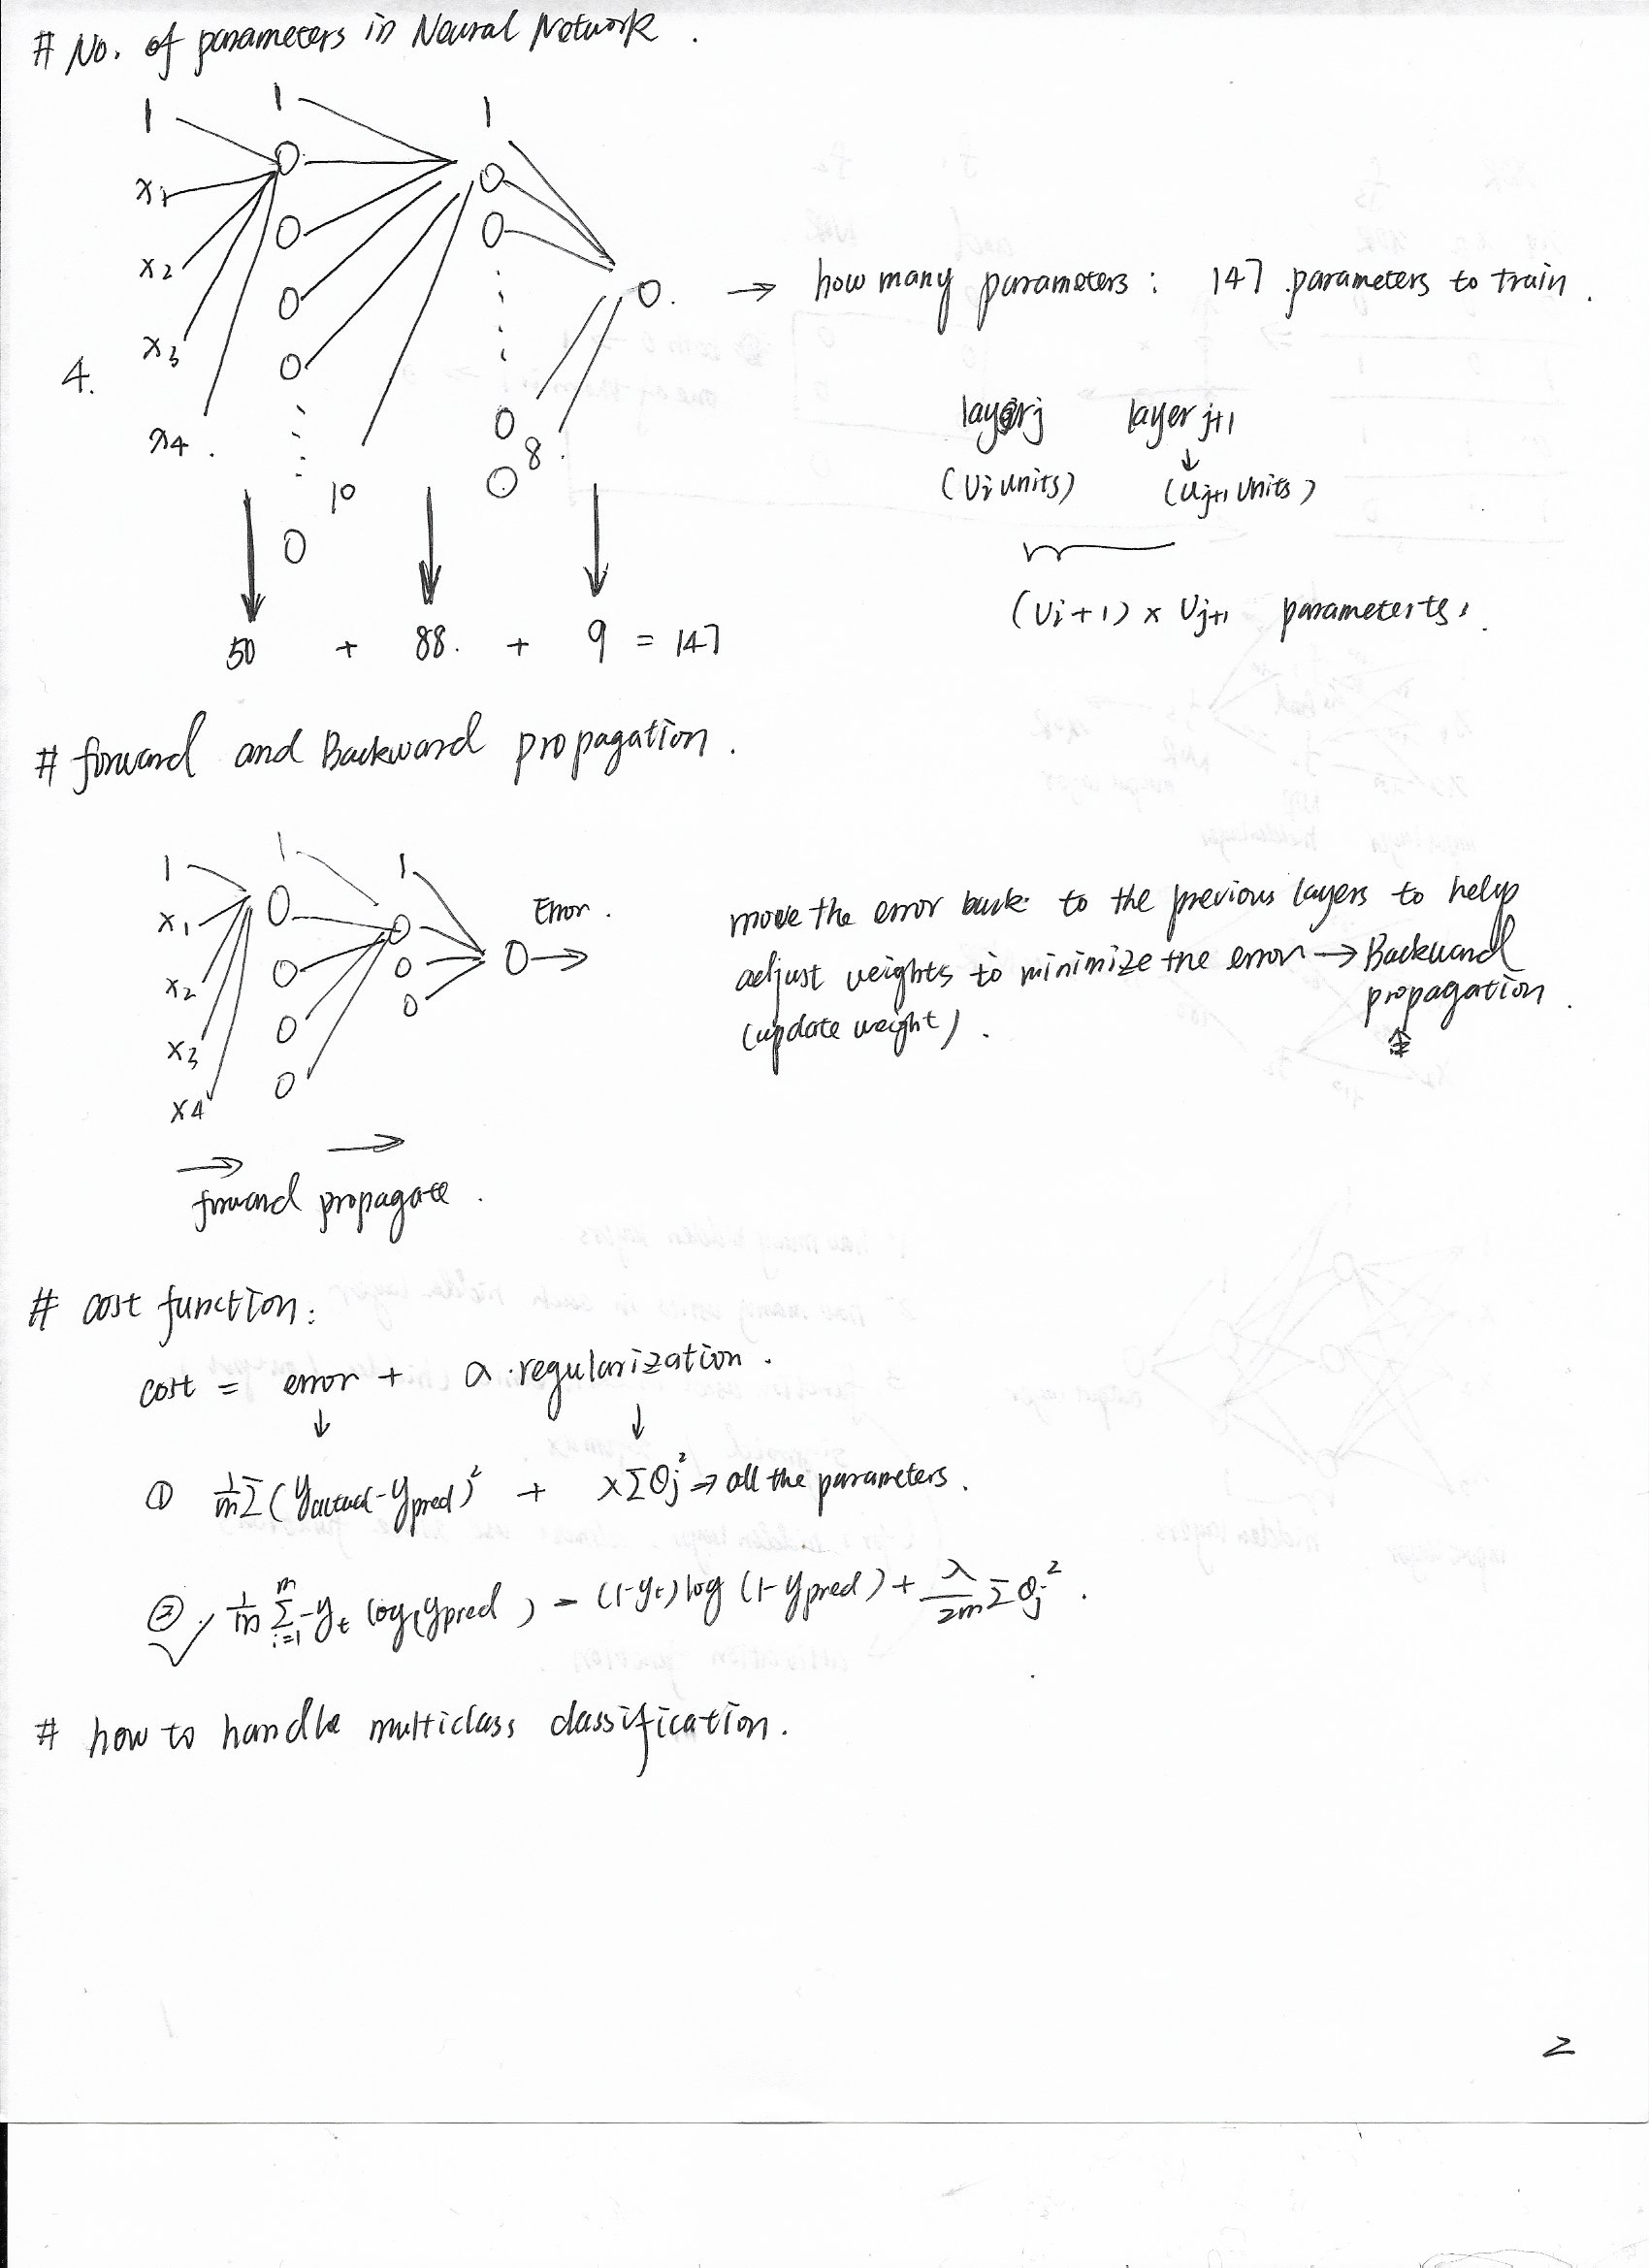 # No. of parameters in Neural Network .
1 1 1
x1
x2
x3
4.
x4 .
10
8 .
→ how many parameters : 147 parameters to train .
layer j layer j+1
↓
(Ui units) (Uj+1 units)
(Ui + 1) × Uj+1 parameterts .
50 + 88. + 9 = 147
# forward and Backward propagation .
1 1 1
x1
x2
x3
x4
Error .
move the error back to the previous layers to help
adjust weights to minimize the error → Backward
propagation .
(update weight) .
→ →
forward propagate .
# cost function :
cost = error + a · regularization .
↓ ↓
① 1/m Σ (yactual - ypred)² + λ Σ θj² → all the parameters .
② ✓ 1/m Σ i=1 m -yt log(ypred) - (1-yt) log (1-ypred) + λ/2m Σ θj² .
# how to handle multiclass classification .
2